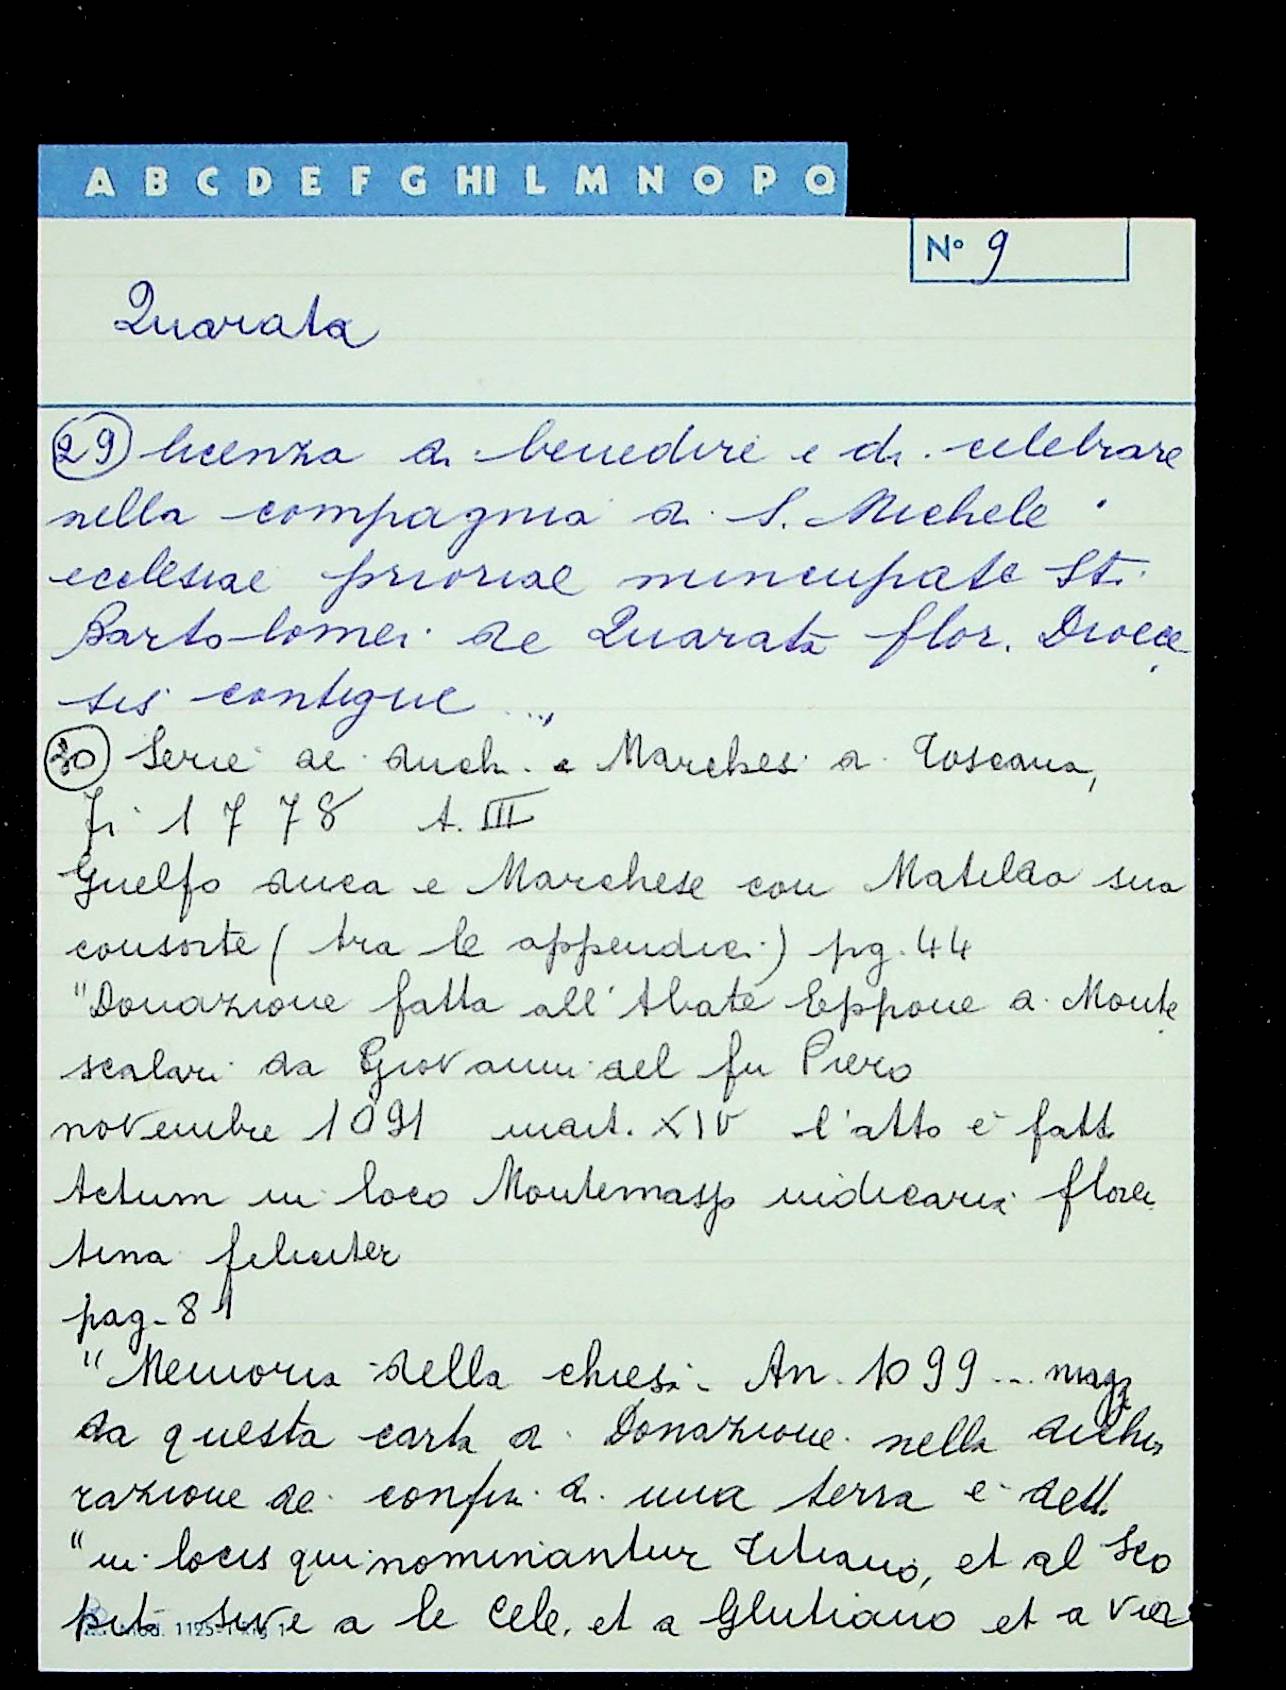 A B C D E F G HI L M N O P Q
N° 9
Quarata
29 licenza di benedire e di celebrare
nella compagnia di S. Michele
ecclesiae prioriae nuncupate Sti
Bartolomei de Quarata flor. Dioece
sis contigue ...
30 Serie dei duchi e Marchesi di Toscana,
Fi 1778 t. III
Guelfo duca e Marchese con Matilda sua
consorte (tra le appendici) pg. 44
"Donazione fatta all'Abate Eppone di Monte
scalari da Giovanni del fu Piero
novembre 1091 XIV l'atto è fatt
Actum in loco iudicaria floren
tina feliciter
pag. 81
"Memoria della chiesa An. 1099 ... magg
da questa carta di Donazione nella dichia
razione dei confini di una terra è dett
"in locis qui nominantur Titiano, et al Sco
peto sive a le Cele, et a Glutiano et a Via
Mod. 1125-1